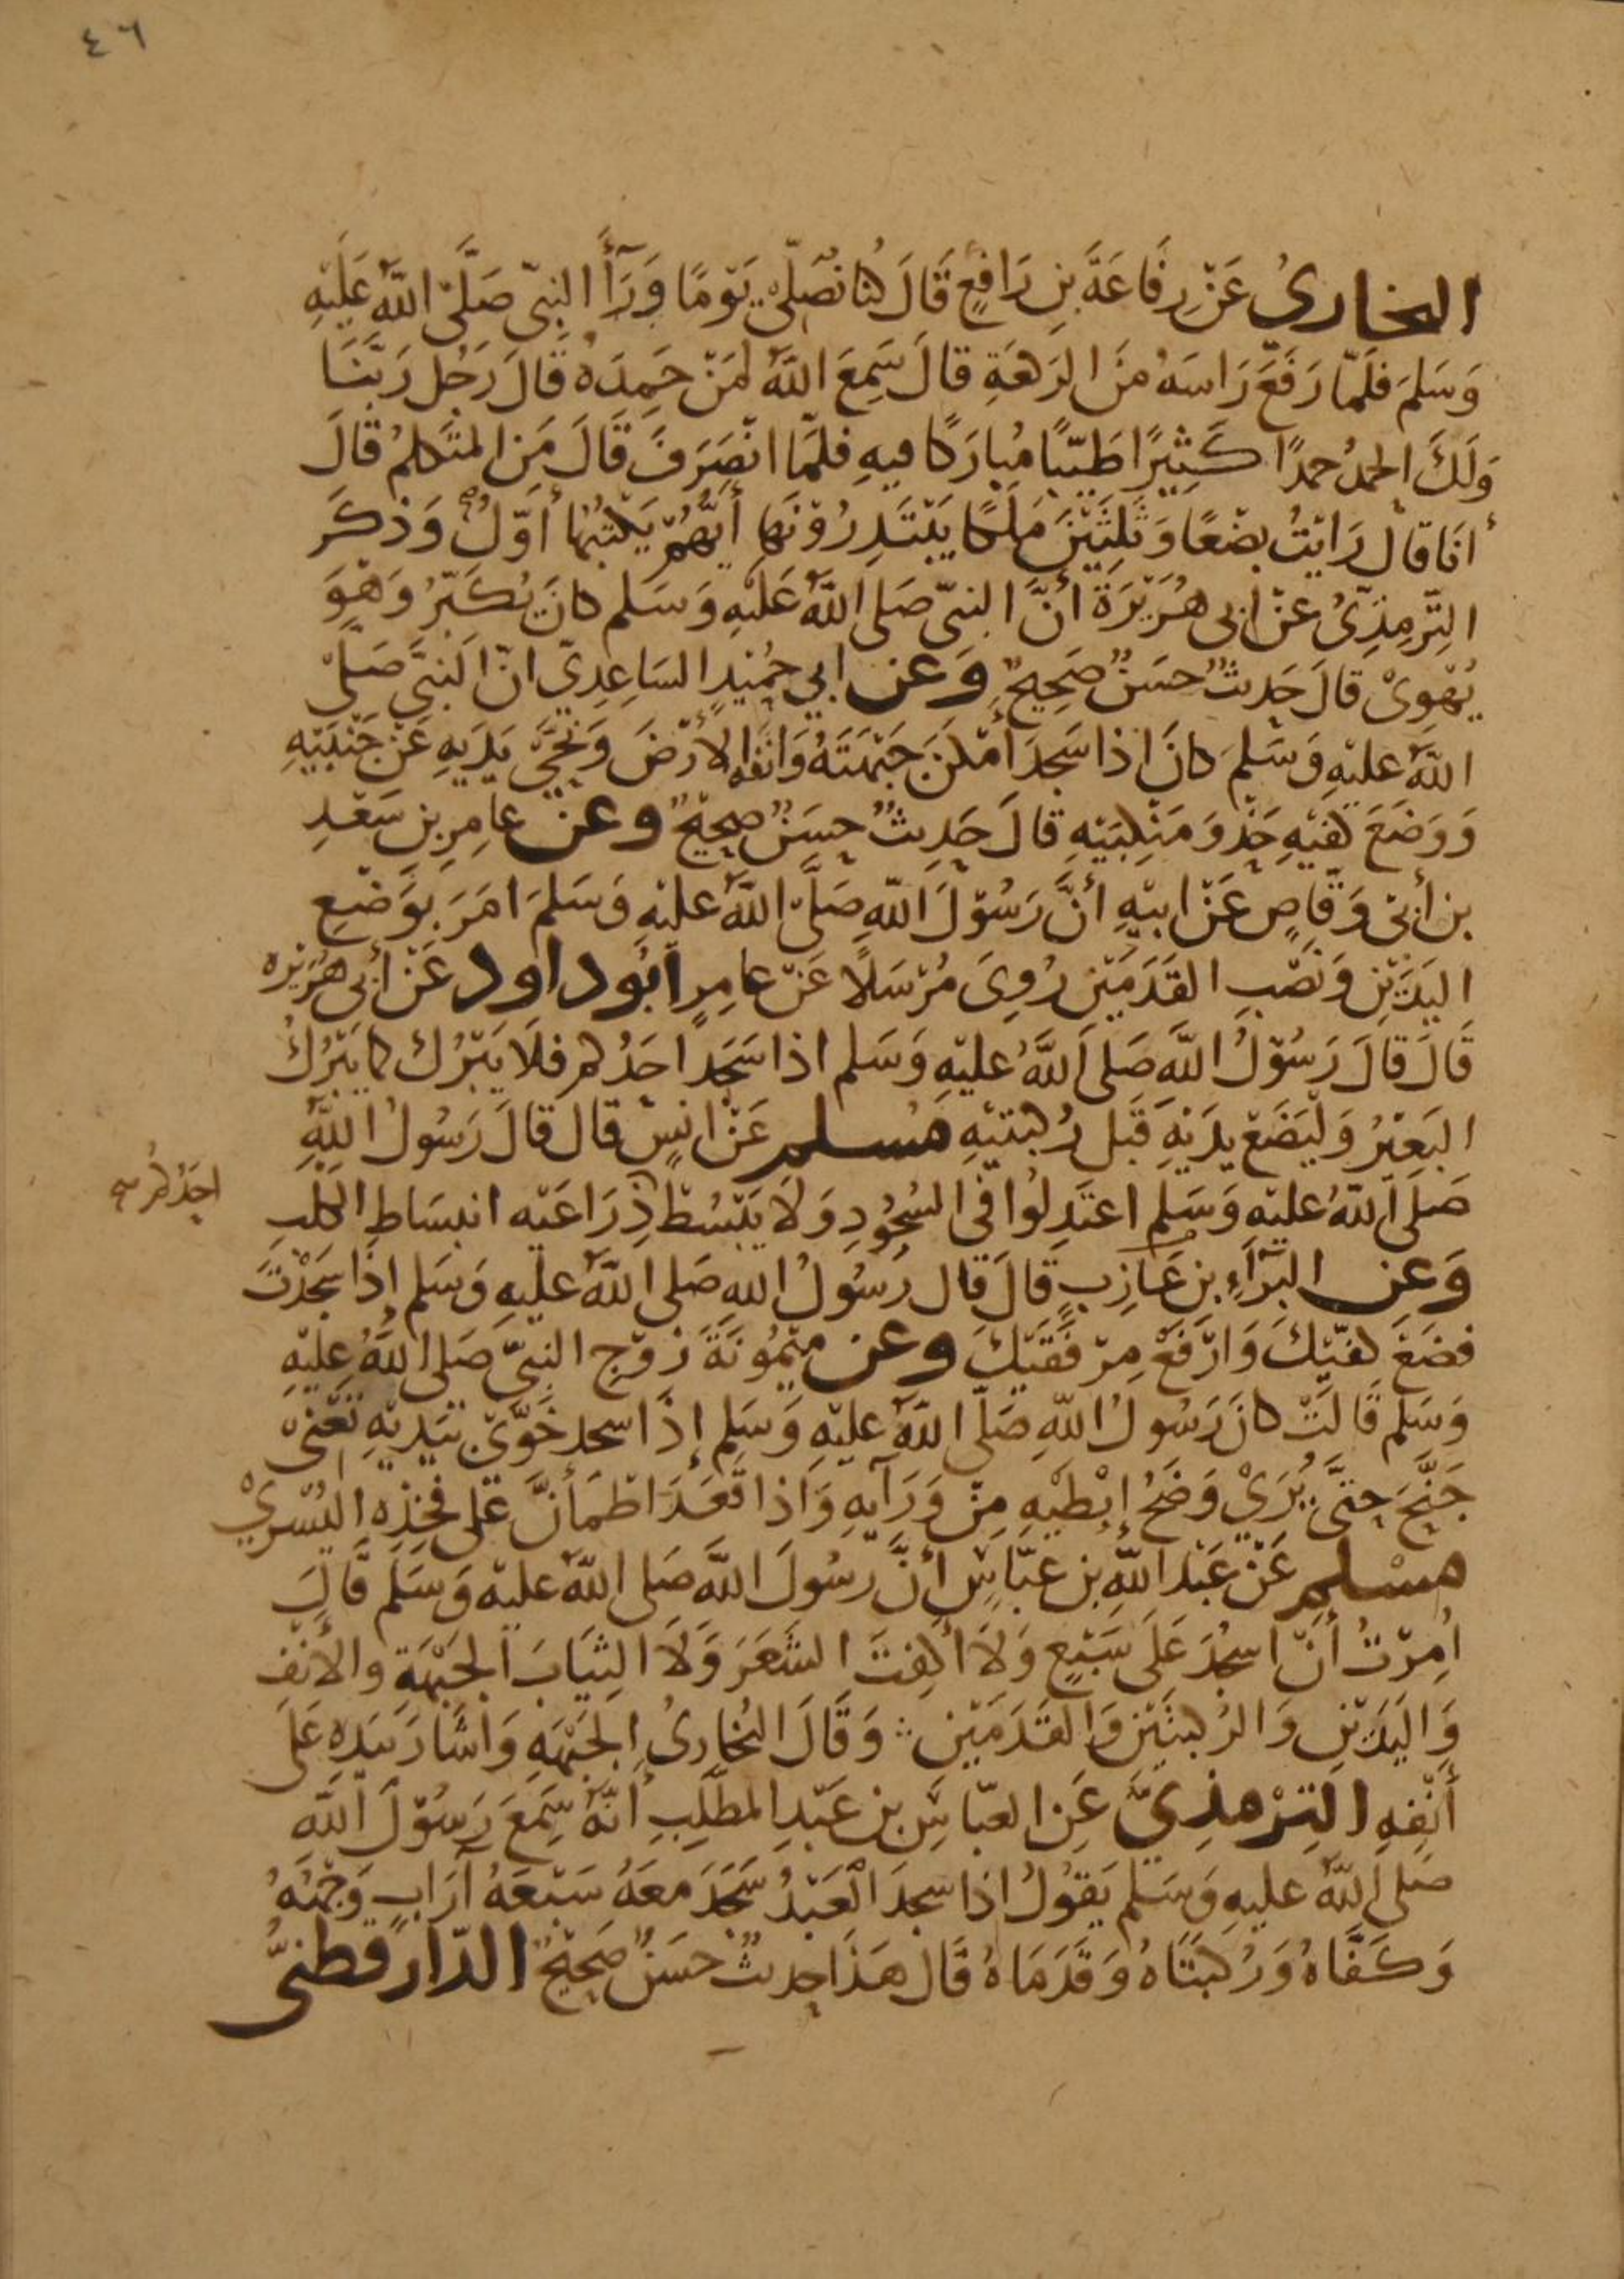 ٤٦
البخارىُ عَنْ رِفَاعَةَ بنِ رَافِعٍ قَالَ كُنا نُصَلّى يَوْمًا وَرَآأَ النبِىّ صَلَّى اللَّهُ عَلَيْهِ
وَسَلمَ فلَمّا رَفَعَ رَاسَهُ منَ الرَكعَةِ قالَ سَمِعَ اللَّهُ لمَنْ حَمِدَهُ قَالَ رَجُل رَبَّنَا
وَلَكَ الحَمدُ حمدًا كَثِيْرًا طَيّبًا مُبارَكًا فيهِ فلمّا انْصَرَفَ قَالَ مَنِ المتَكلمُ قَالَ
أنَا قالَ رَايْتُ بضْعًا وَثَلثِيْنَ مَلَكًا يَبْتَدِرُوْنَها أيُّهُمْ يَكتبُهَا أوّلُ وَذكَر
التِّرمِذِىُّ عَنْ ابى هُرَيْرَةَ أنَّ النبىّ صَلى اللَّهُ عَلَيْهِ وَسَلم كانَ يُكَبّرُ وَهْوَ
يُهْوِىْ قَالَ حَدِيثٌ حسَنٌ صَحِيحٌ وَعن ابي حُمَيْدٍ السَاعِدِيّ انّ النَبىَّ صَلَّى
اللَّهُ عليْهِ وَسَلمَ كانَ اذا سَجدَ أمْكنَ جَبْهَتَهُ وَانفَهُ الأرْضَ وَنَحَّى يَدَيهِ عَنْ جَنْبَيْهِ
وَوَضَعَ كفيْهِ حَذْوَ مَنْكِبَيْهِ قالَ حَدِيثٌ حسَنٌ صحِيْحٌ وعن عامِرِ بنِ سَعْدِ
بن أبىْ وَقّاصٍ عَنْ ابيْهِ أنَّ رَسُوْلَ اللَّهِ صَلَّى اللَّهُ عليْهِ وَسَلمَ امَرَ بوَضْعِ
اليَدَيْنِ وَنَصْبِ القَدَمَيْنِ رُوِىَ مُرْسَلًا عَنْ عامِرٍ ابُو داود عَنْ أبى هُرَيْره
قَالَ قالَ رَسُوْلُ اللَّهِ صَلى اللَّهُ عليْهِ وَسَلم اذا سَجَد احَدُكم فلَا يَبْرُك كما يَبْرُكُ
البَعِيْرُ وَلْيَضَعْ يدَيْهِ قَبل رُكبَتيْهِ مُسلم عَنْ انسٍ قال قالَ رَسُولُ اللَّهِ
صَلَى اللَّهُ عليْهِ وَسَلم اعتَدِلُوا فى السُجُوْدِ وَلَا يَبْسُطْ ذِرَاعَيْه انبسَاطِ الكلبِ
احَدُكُم
وَعن البَرَآءِ بن عَازِبٍ قَالَ قال رَسُولُ اللهِ صَلى اللَّهُ عليْهِ وَسَلم إذَا سَجَدْتَ
فضَعْ كفيْكَ وَارْفَعْ مِرْفَقَيْكَ وعن ميْمُوْنَةَ زَوْجِ النبِىّ صَلى اللَّهُ عليْهِ
وَسَلم قَالَتْ كانَ رَسُولُ اللهِ صَلّى اللَّهُ عليْهِ وَسَلم إذَا سجد خَوَّىْ بيَديْهِ تعْنىْ
جَنَّحَ حَتىَّ يُرَىْ وَضَحُ إبْطيْهِ مِنْ وَرَآيهِ وَاذا قَعَدَ اطْمَأنَّ عَلى فخِذِهِ اليُسْرىْ
مسْلم عَنْ عَبْدِ اللَّهِ بن عبّاسٍ أنَّ رسُولَ اللَّهِ صَلى اللَّهُ عليْه وَسَلم قَالَ
امِرْتُ أنْ اسجُدَ عَلَى سَبْعٍ وَلَا أكفِتَ الشَعَرَ وَلَا الثِيَابَ الجَبْهَةِ والأنْفِ
وَاليَدَيْنِ وَالرُكبتَيْنِ وَالقَدَمَيْنِ وَقَالَ البُخارىُ الجَبْهَهِ وَاشَارَ بيَدِهِ عَلَى
أنْفِهِ التِرْمِذِىُّ عَنِ العبّاسِ بن عَبْدِ المطَّلِبِ أنَّهُ سَمِعَ رَسُوْلَ اللَّهِ
صَلى اللَّهُ عليْهِ وَسَلم يَقوْلُ اذا سجدَ العَبْدُ سَجَدَ معَهُ سَبْعَهُ آرَابٍ وَجْهُهُ
وَكَفَّاهُ وَرُكبَتَاهُ وَقَدَمَاهُ قَالَ هَذَا حديثٌ حسَنٌ صَحِيْحٌ الدّارقطنىُّ